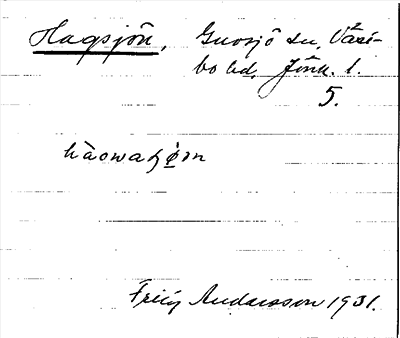 Hagsjön, Gnosjö sn, Västbo hd, Jönk. l.
5.
hàowaʂø̀n
Fritz Andersson 1931.